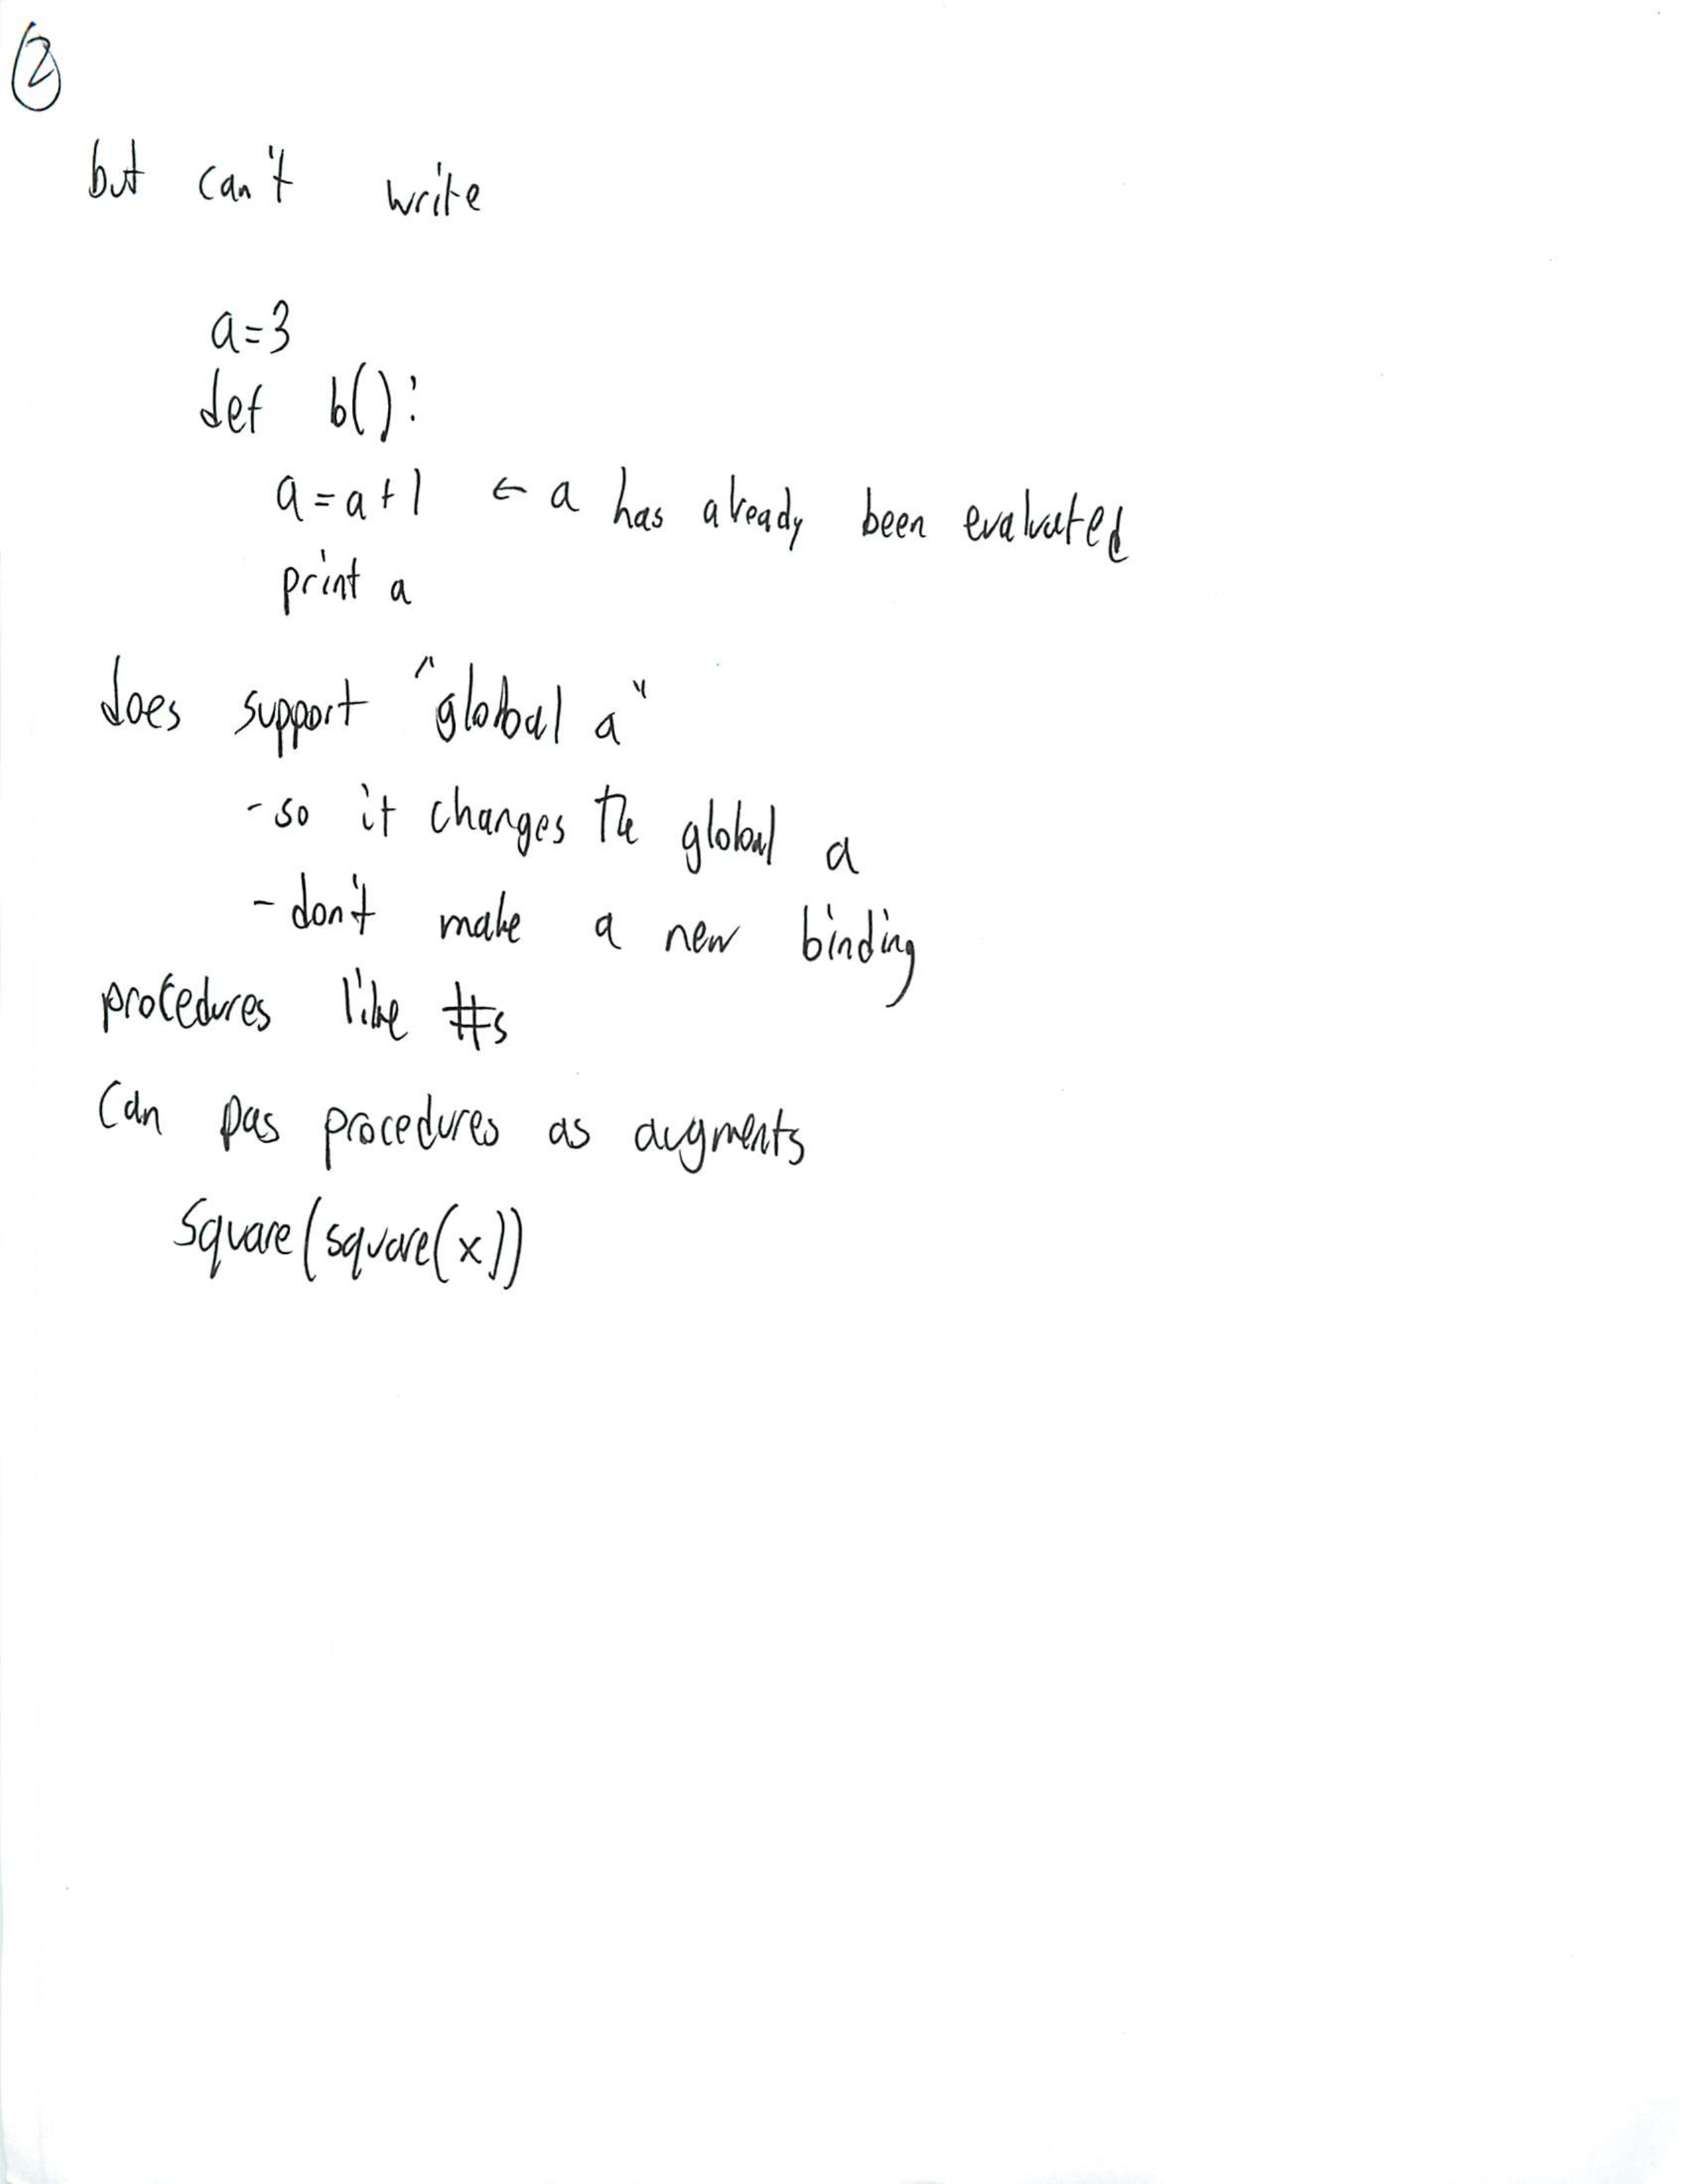 2
but can't write
a=3
def b():
a=a+1 ← a has already been evaluated
print a
does support "global a"
-so it changes the global a
-don't make a new binding
procedures like #s
Can pas procedures as augments
Square(square(x))